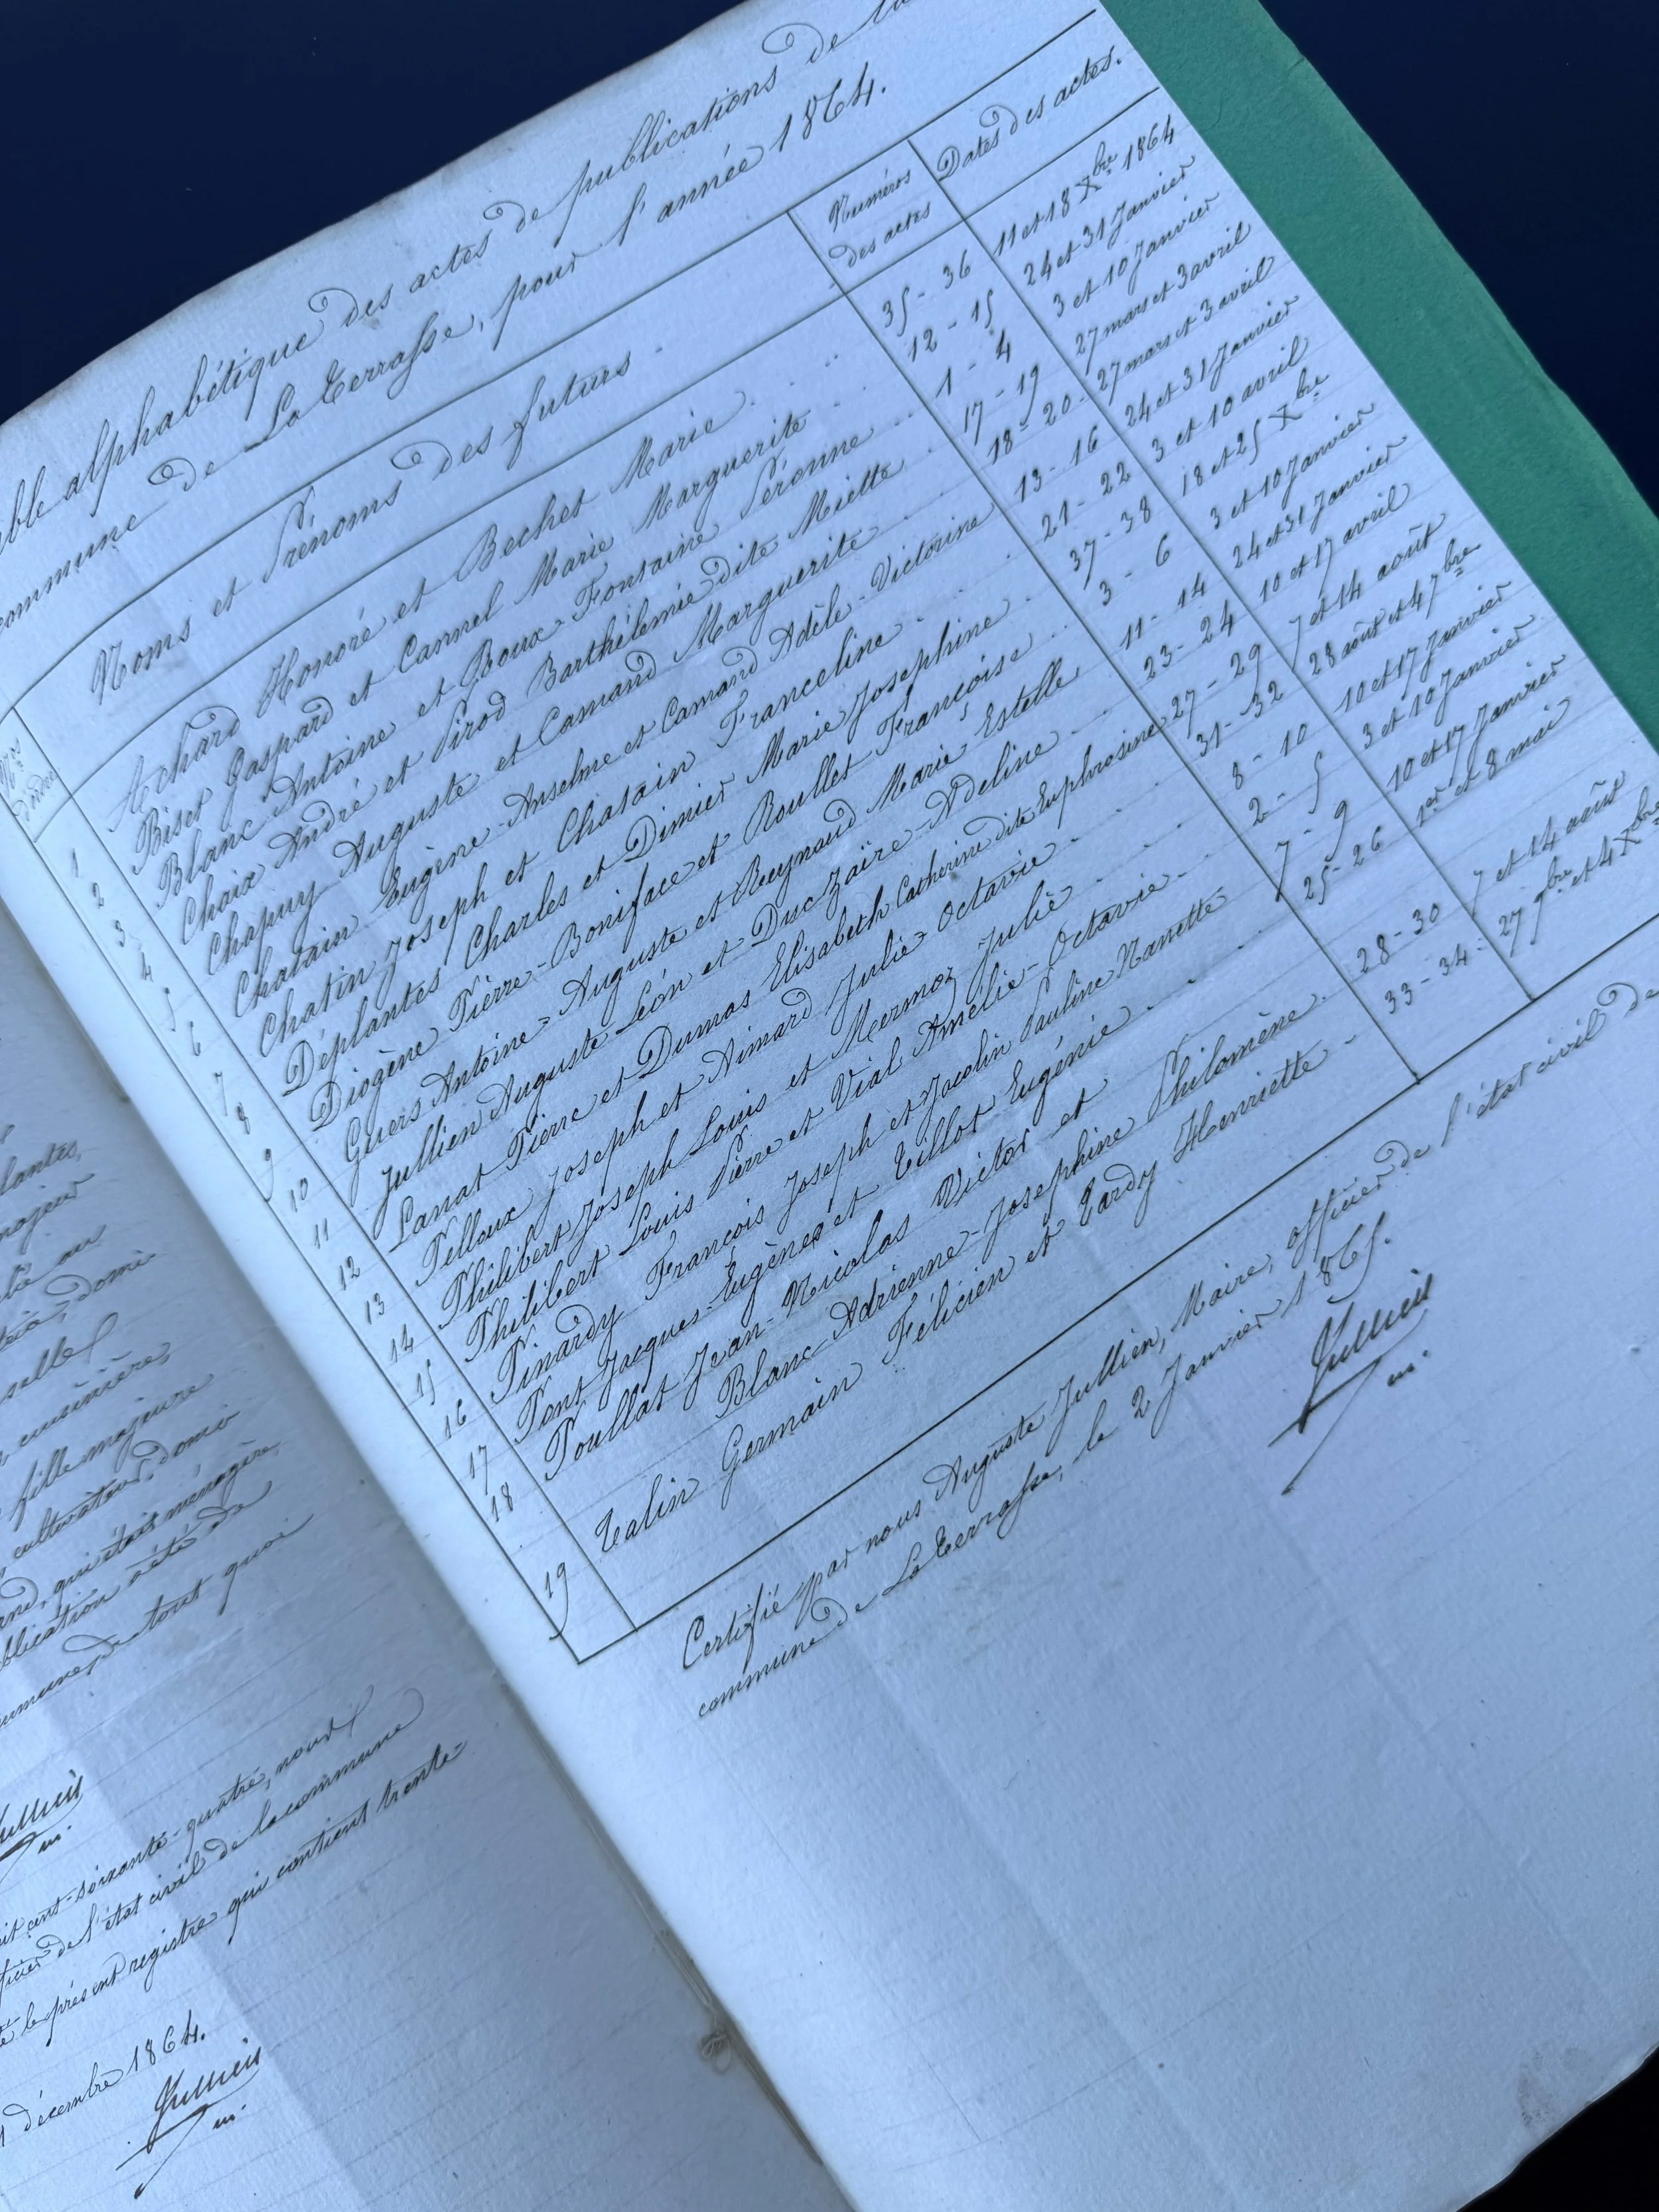 lantes,
majeur
selle
cuisinière,
fille majeure
cultivateur, domi
qui était ménagère,
publication a été de
de tout quoi
Jullien
soixante-quatre, nous
de l'état civil de la commune
le présent registre qui contient trente
décembre 1864.
Jullien
m.
alphabétique des actes de publications de
commune de La Terrasse, pour l'année 1864.
Nos d'ordre
Noms et Prénoms des futurs
Numéros des actes
Dates des actes.
1 Achard Honoré et Bechet Marie 35 - 36 11 et 18 Xbre 1864
2 Biset Gaspard et Cannel Marie Marguerite 12 - 15 24 et 31 Janvier
3 Blanc Antoine et Boux-Fontaine Péronne 1 - 4 3 et 10 Janvier
4 Chaix André et Pirod Barthélemie dite Miette 17 - 19 27 mars et 3 avril
5 Chapuy Auguste et Camand Marguerite 18 - 20 - 27 mars et 3 avril
6 Chatain Eugène-Anselme et Camand Adèle-Victorine 13 - 16 24 et 31 Janvier
7 Chatin Joseph et Chatain Franceline 21 - 22 3 et 10 avril
8 Déplantes Charles et Dimier Marie Josephine 37 - 38 18 et 25 Xbre
9 Diogène Pierre-Boniface et Roullet Françoise 3 - 6 3 et 10 Janvier
10 Guers Antoine-Auguste et Reynaud Marie Estelle 11 - 14 24 et 31 Janvier
11 Jullien Auguste Léon et Duc Zaïre-Adeline 23 - 24 10 et 17 avril
12 Lanat Pierre et Dumas Elisabeth Catherine dite Euphrosine 27 - 29 7 et 14 août
13 Pelloux Joseph et Aimard Julie Octavie 31 - 32 28 août et 4 7bre
14 Philibert Joseph Louis et Mermoz Julie 8 - 10 10 et 17 Janvier
15 Philibert Louis Pierre et Vial Amélie-Octavie 2 - 5 3 et 10 Janvier
16 Pinardy François Joseph et Jacolin Pauline Nanette 7 - 9 10 et 17 Janvier
17 Pont Jacques-Eugène et Tillot Eugénie 25 - 26 1er et 8 mai
18 Poullat Jean-Nicolas Victor et
Blanc Adrienne-Josephine Philomène 28 - 30 7 et 14 août
19 Talin Germain Félicien et Tardy Henriette 33 - 34 - 27 9bre et 4 Xbre
Certifié par nous Auguste Jullien, Maire, officier de l'état civil de
commune de La Terrasse, le 2 Janvier 1865.
Jullien
m.